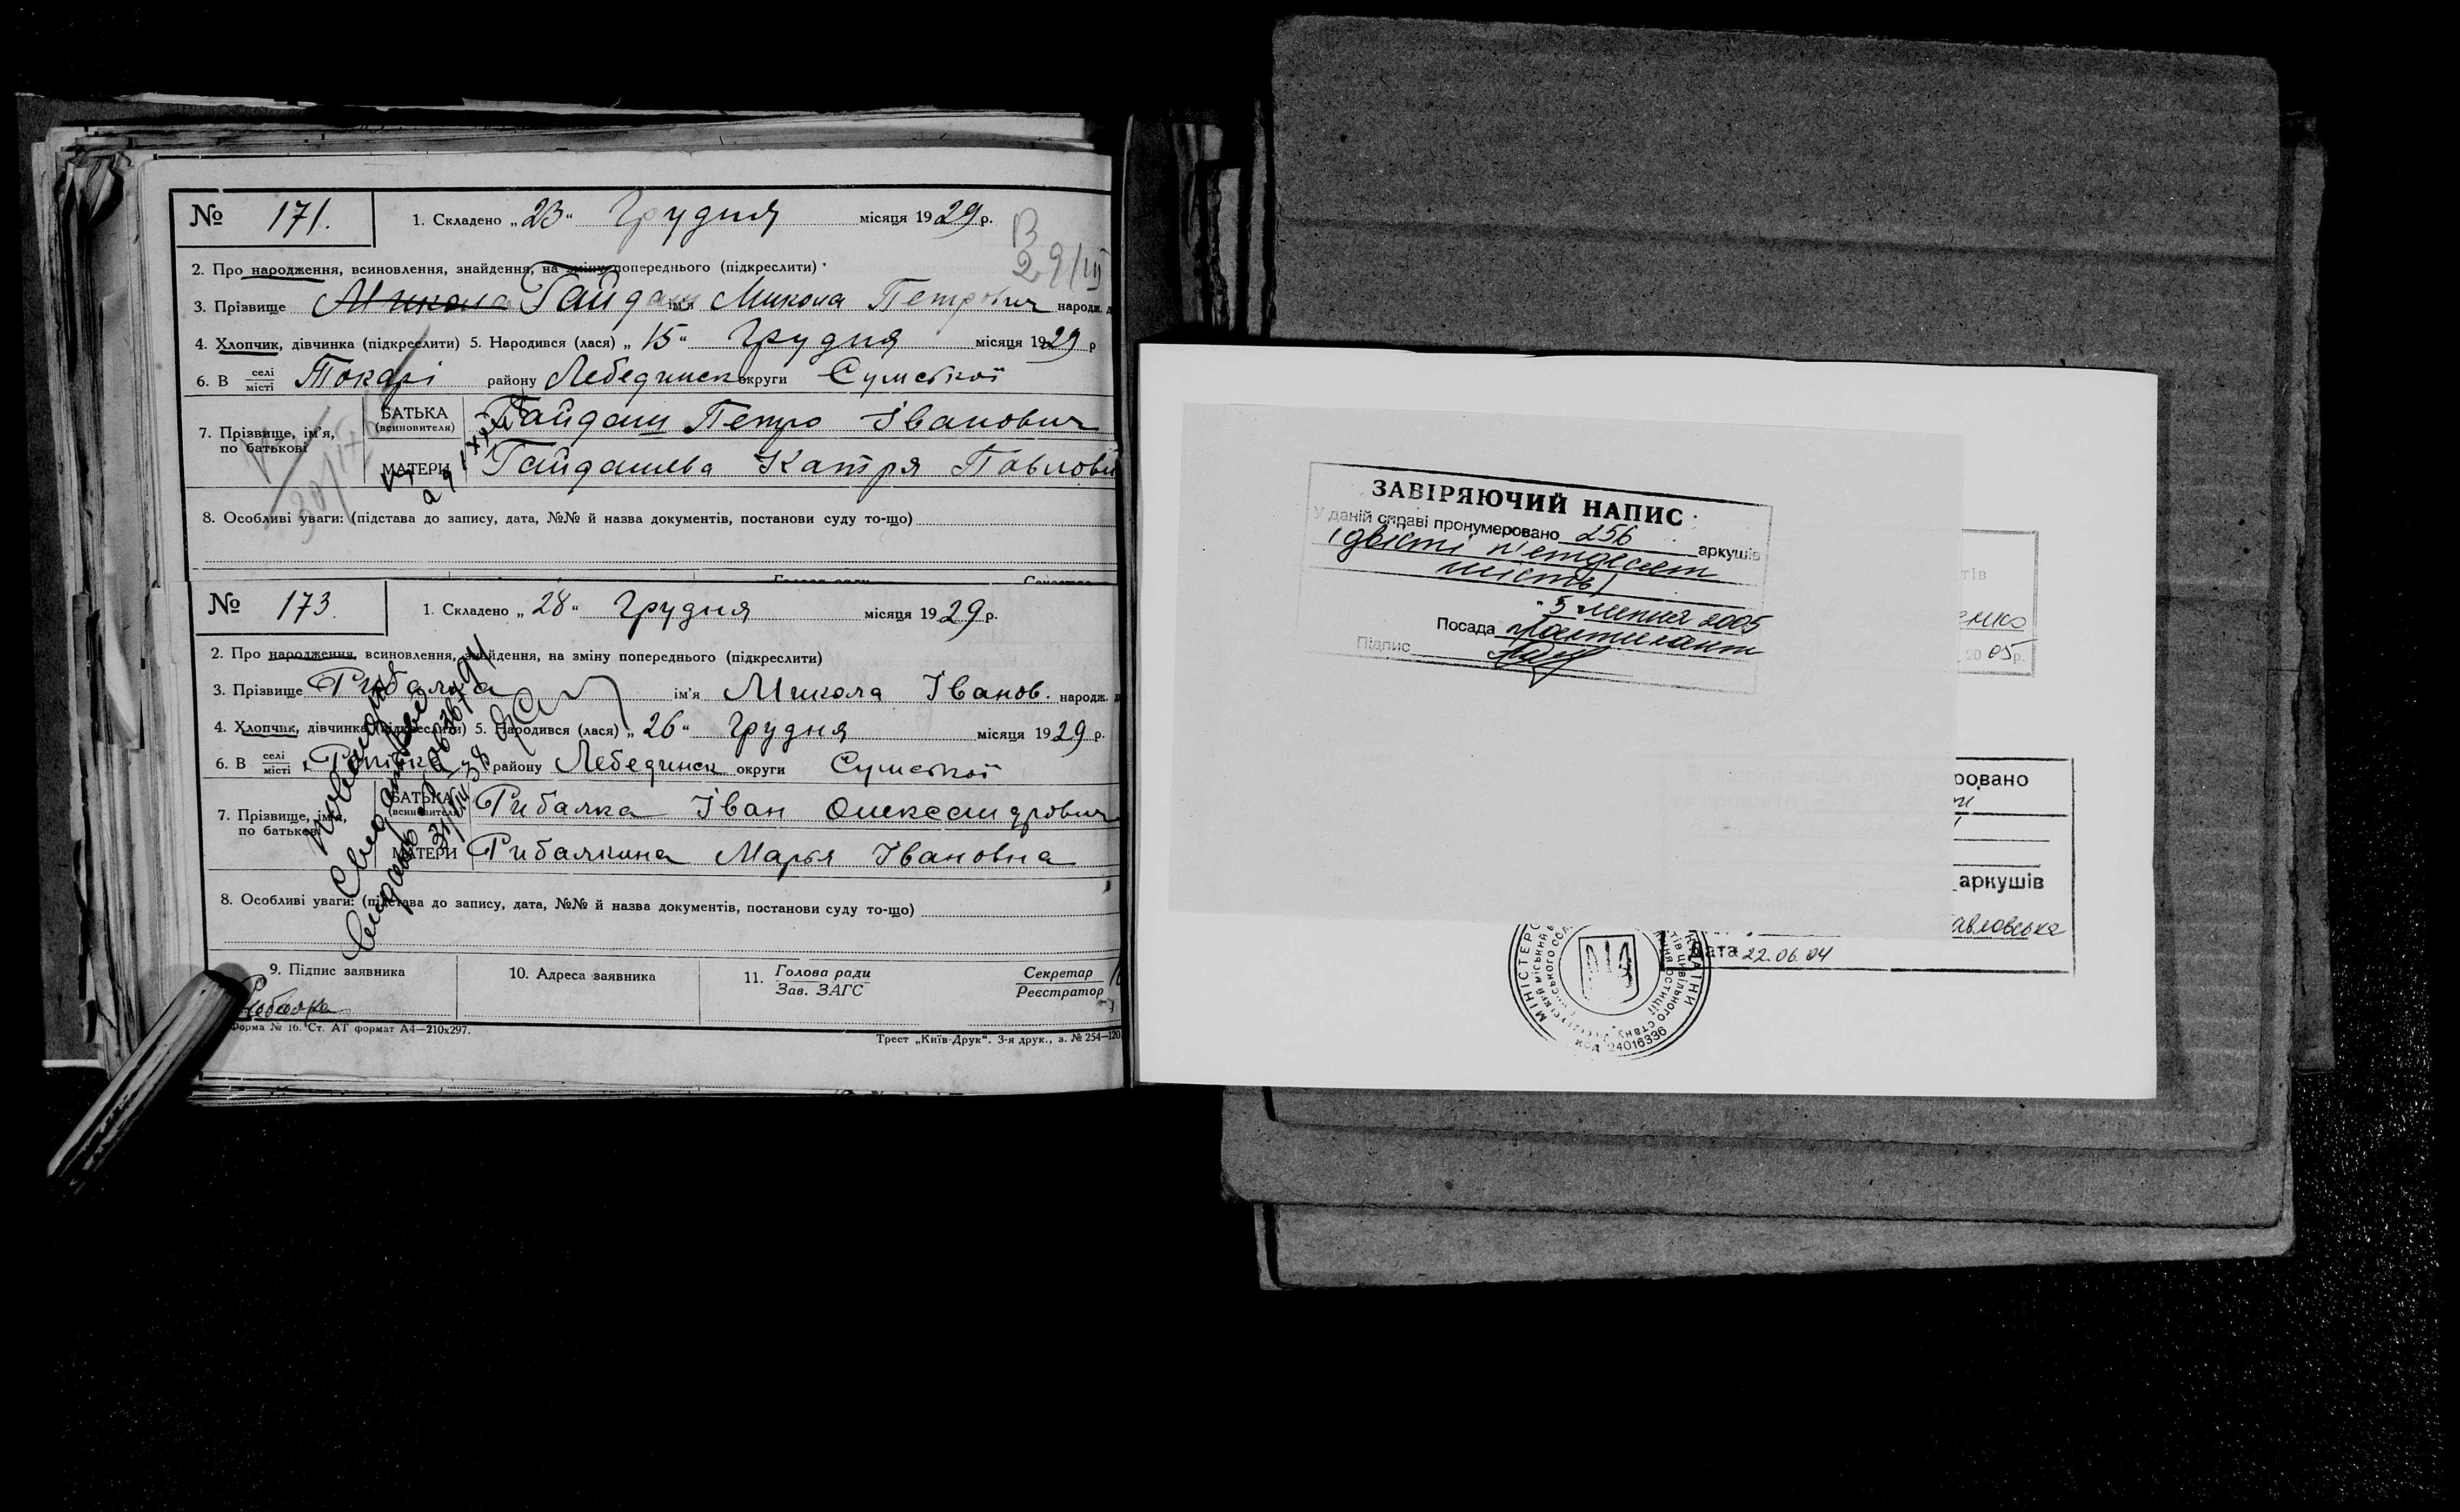 № 171. 1. Складено „23“ Грудня місяця 1929 р.
В
29/III
2. Про народження, всиновлення, знайдення, на зміну попереднього (підкреслити)
3. Прізвище Микола Гайдаш ім'я Микола Петрович народж. д
4. Хлопчик, дівчинка (підкреслити) 5. Народився (лася) „15“ Грудня місяця 1929 р
6. В селі місті Токарі району Лебединск округи Сумської
7. Прізвище, ім'я, по батькові
БАТЬКА (всиновителя) Гайдаш Петро Іванович
МАТЕРИ Гайдашева Катря Павлови
8. Особливі уваги: (підстава до запису, дата, №№ й назва документів, постанови суду то-що)
№ 173. 1. Складено „28“ Грудня місяця 1929 р.
2. Про народження, всиновлення, знайдення, на зміну попереднього (підкреслити)
3. Прізвище Рибалка ім'я Микола Іванов. народж. д
4. Хлопчик, дівчинка (підкреслити) 5. Народився (лася) „26“ Грудня місяця 1929 р.
6. В селі місті району Лебединск округи Сумської
7. Прізвище, ім'я, по батькові
БАТЬКА (всиновителя) Рибалка Іван Олександрович
МАТЕРИ Рибалкина Марья Івановна
8. Особливі уваги: (підстава до запису, дата, №№ й назва документів, постанови суду то-що)
9. Підпис заявника 10. Адреса заявника 11. Голова ради Зав. ЗАГС Секретар Реєстратор
Форма № 16. Ст. АТ формат А4—210х297.
Трест „Київ-Друк“. 3-я друк., з. № 254—120
ЗАВІРЯЮЧИЙ НАПИС
У даній справі пронумеровано 256 аркушів
(двісті п'етдесят
шість)
"5 липня 2005
Посада практикант
Підпис
2005р.
ровано
аркушів
авловська
Дата 22.06.04
код 24016336